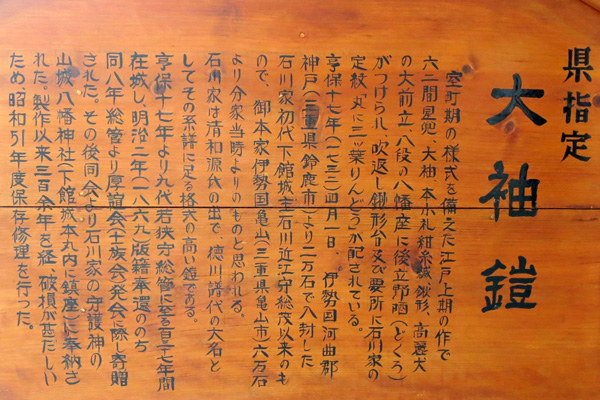 県指定
大袖鎧
室町期の様式を備えた江戸上期の作で
六二間星兜、大袖、本小札紺糸縅、鍬形、高麗犬
の大前立、八段の八幡座に後立髑髏(どくろ)
がつけられ、吹返し鍬形台及び要所に石川家の
定紋丸に三ッ葉りんどうが配されている。
享保十七年(一七三二)四月一日 伊勢国河曲郡
神戸(三重県鈴鹿市)より二万石で入封した
石川家初代下館城主石川近江守総茂以来のも
ので、御本家伊勢国亀山(三重県亀山市)六万石
より分家当時よりのものと思われる。
石川家は清和源氏の出で 徳川譜代の大名と
してその系譜に足る格式の高い鎧である。
享保十七年より九代若狭守総管に至る百三十七年間
在城し、明治二年(一八六九)版籍奉還ののち
同八年総管より厚誼会(士族会)発会に際し寄贈
された。その後同会より石川家の守護神の
山城八幡神社(下館城本丸内に鎮座)に奉納さ
れた。製作以来三百余年を経、破損が甚だしい
ため、昭和51年度保存修理を行った。